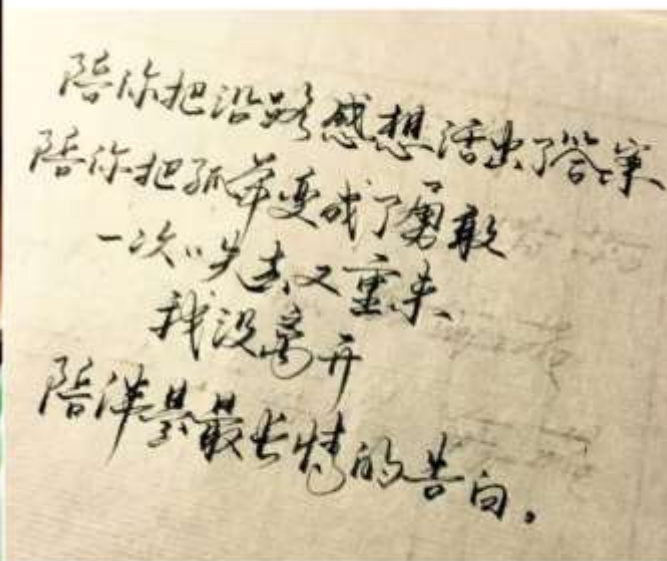 陪你把沿路感想活出了答案
陪你把孤单变成了勇敢
一次次失去又重来
我没离开
陪伴是最长情的告白。